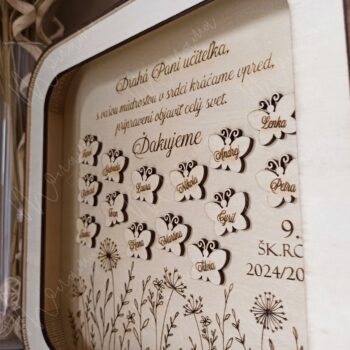 Drahá Pani učiteľka,
s vašou múdrosťou v srdci kráčame vpred,
pripravení objaviť celý svet.
Ďakujeme
Lenka
Andrej
Petra
Nikola
Laura
Cyril
Martina
Hana
Ivan
Tánia
9.
ŠK.RO
2024/20